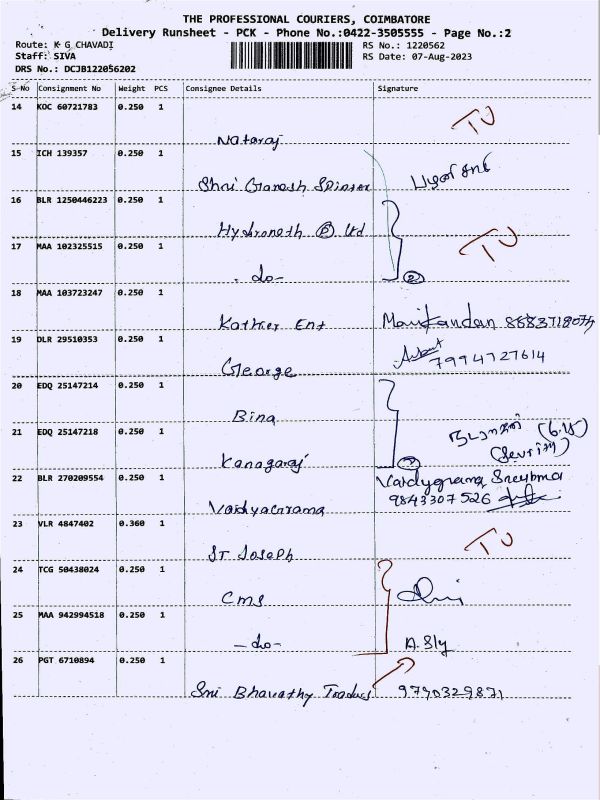 THE PROFESSIONAL COURIERS, COIMBATORE
Delivery Runsheet - PCK - Phone No.:0422-3505555 - Page No.:2
Route: K G CHAVADI
RS No.: 1220562
Staff: SIVA
RS Date: 07-Aug-2023
DRS No.: DCJB122056202
S-No Consignment No Weight PCS Consignee Details Signature
14 KOC 60721783 0.250 1
Nataraj
TU
15 ICH 139357 0.250 1
Shri Ganesh
16 BLR 1250446223 0.250 1
Hydroneth (P) Ltd
17 MAA 102325515 0.250 1
TU
- do - (2)
18 MAA 103723247 0.250 1
Kathier Ent Manikandan
19 DLR 29510353 0.250 1
George 7994727614
20 EDQ 25147214 0.250 1
Bina
21 EDQ 25147218 0.250 1
Kanagaraj
22 BLR 270209554 0.250 1
Vaidyagrama
9843307526
Vaidyagrama
23 VLR 4847402 0.360 1
TU
ST Joseph
24 TCG 50438024 0.250 1
CMS
25 MAA 942994518 0.250 1
- do -
26 PGT 6710894 0.250 1
Sri Bharathy Traders 9790329871